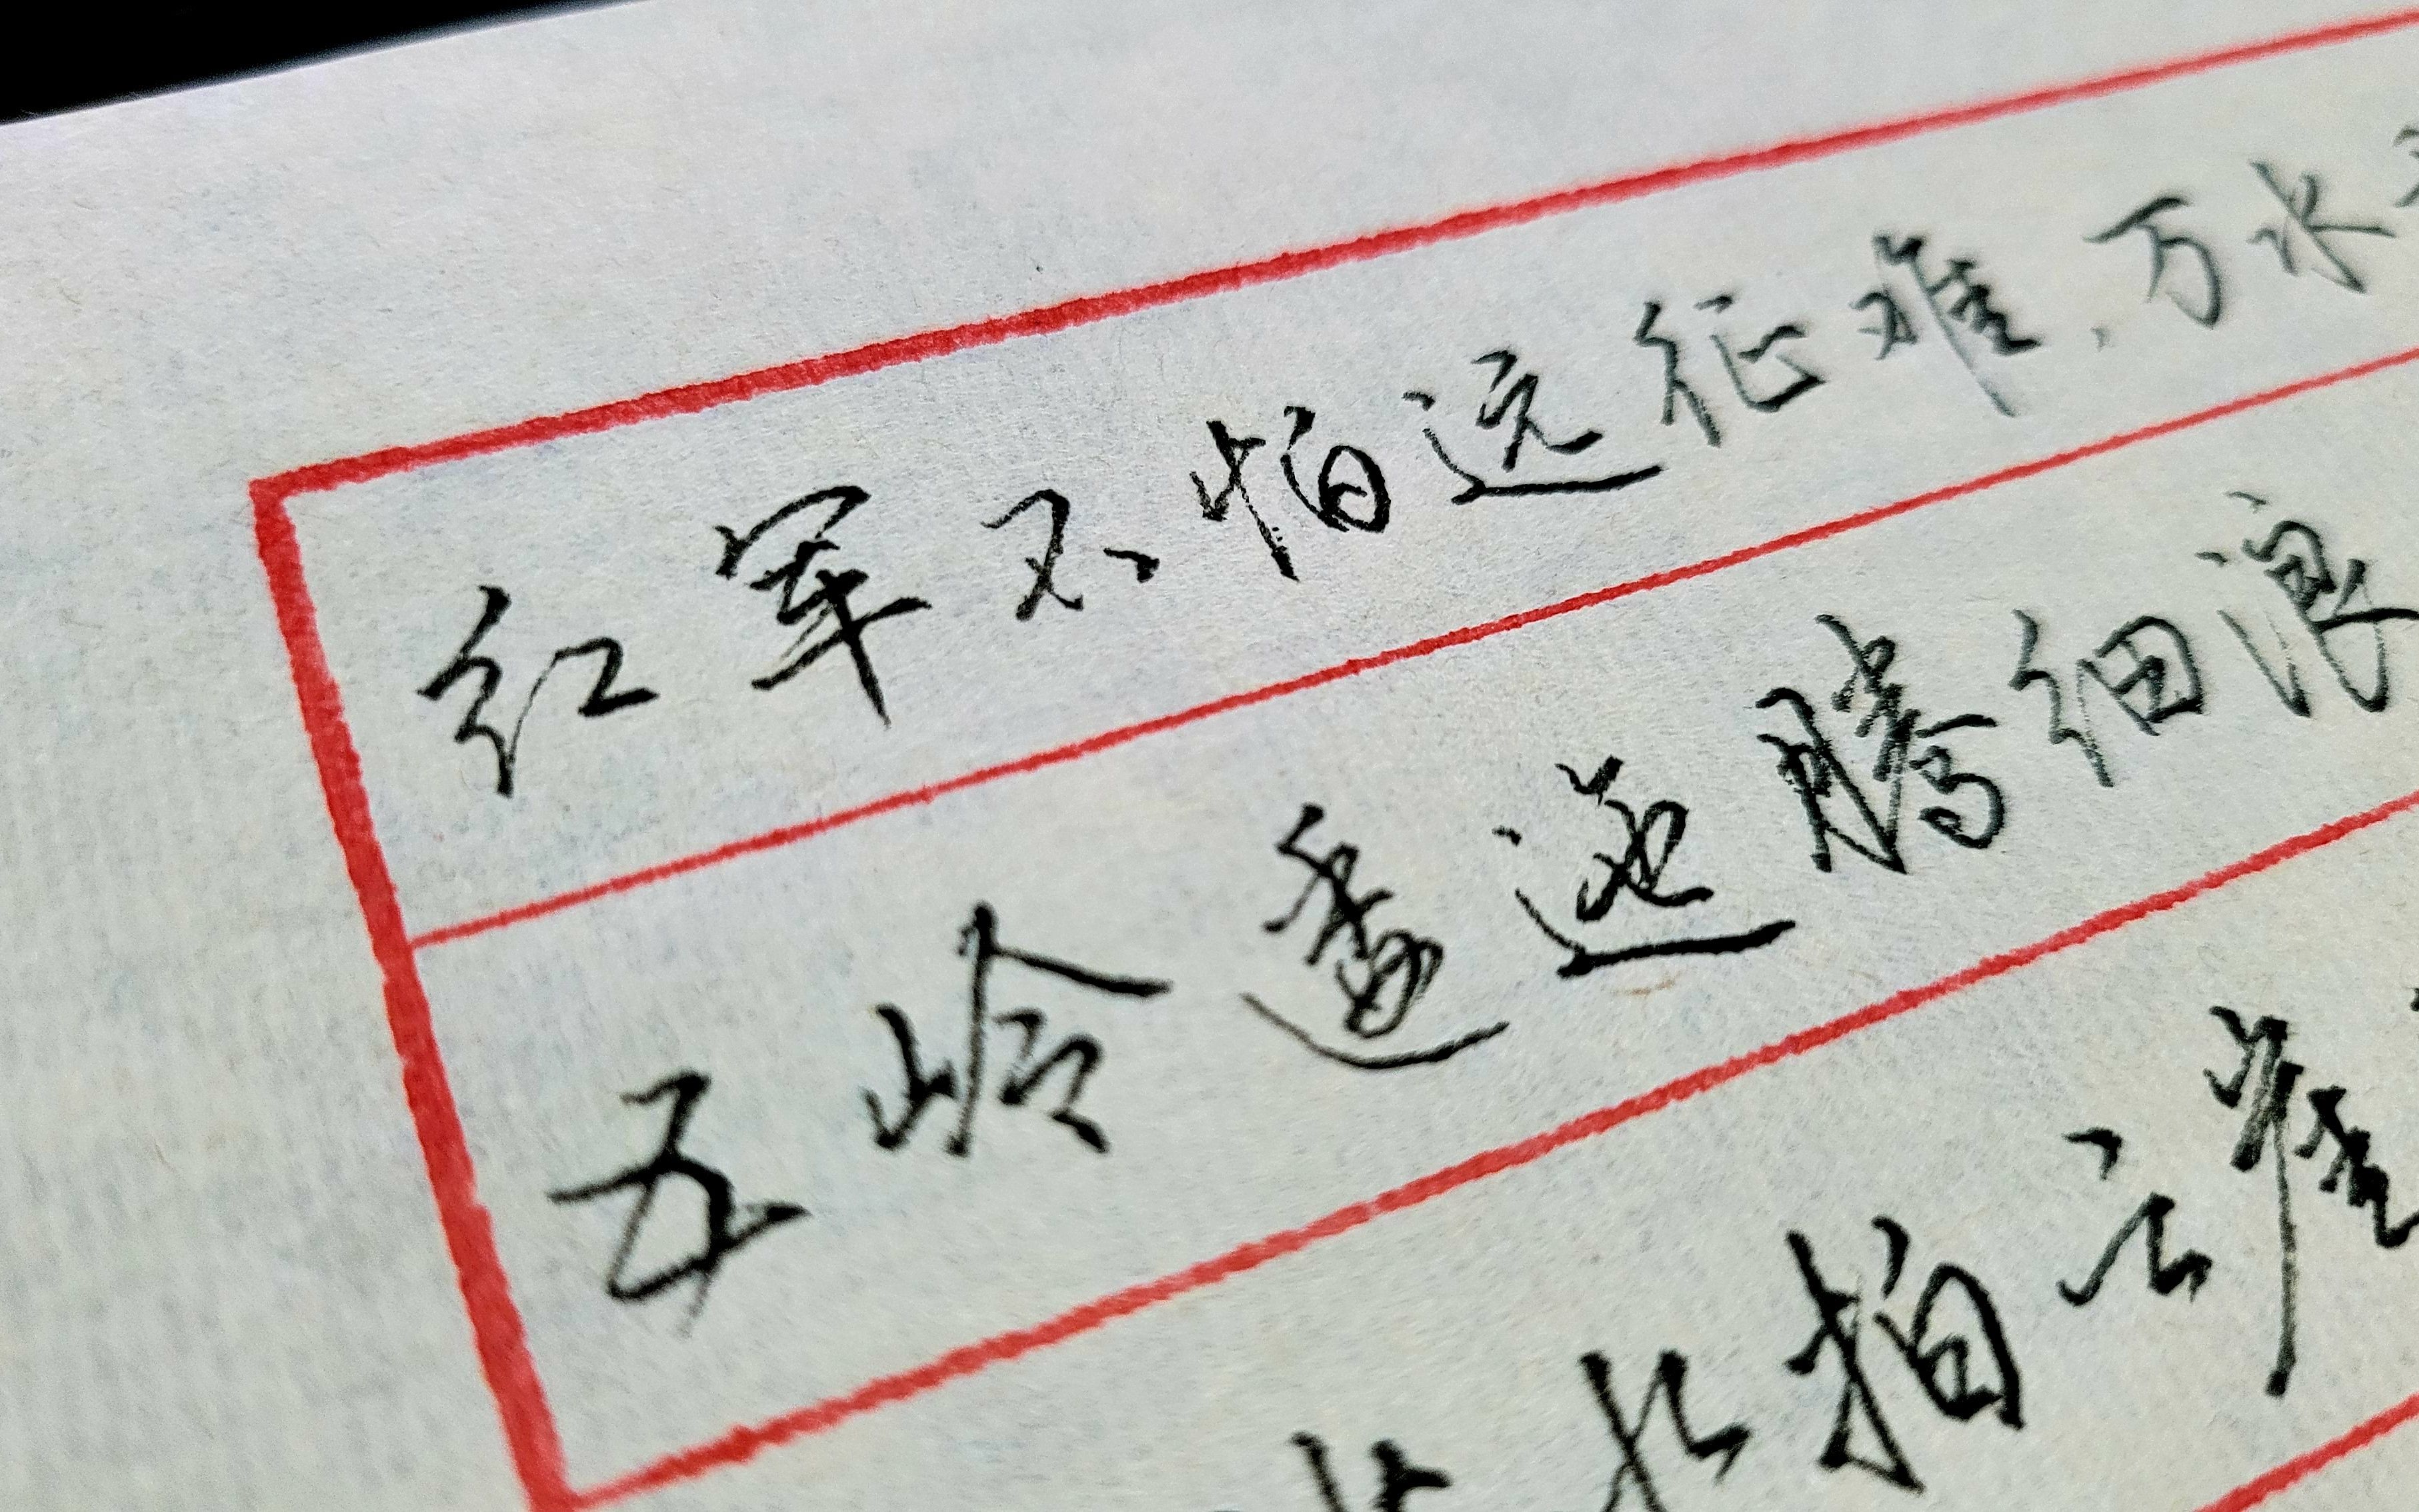 红军不怕远征难,万水
五岭逶迤腾细浪
水拍云崖